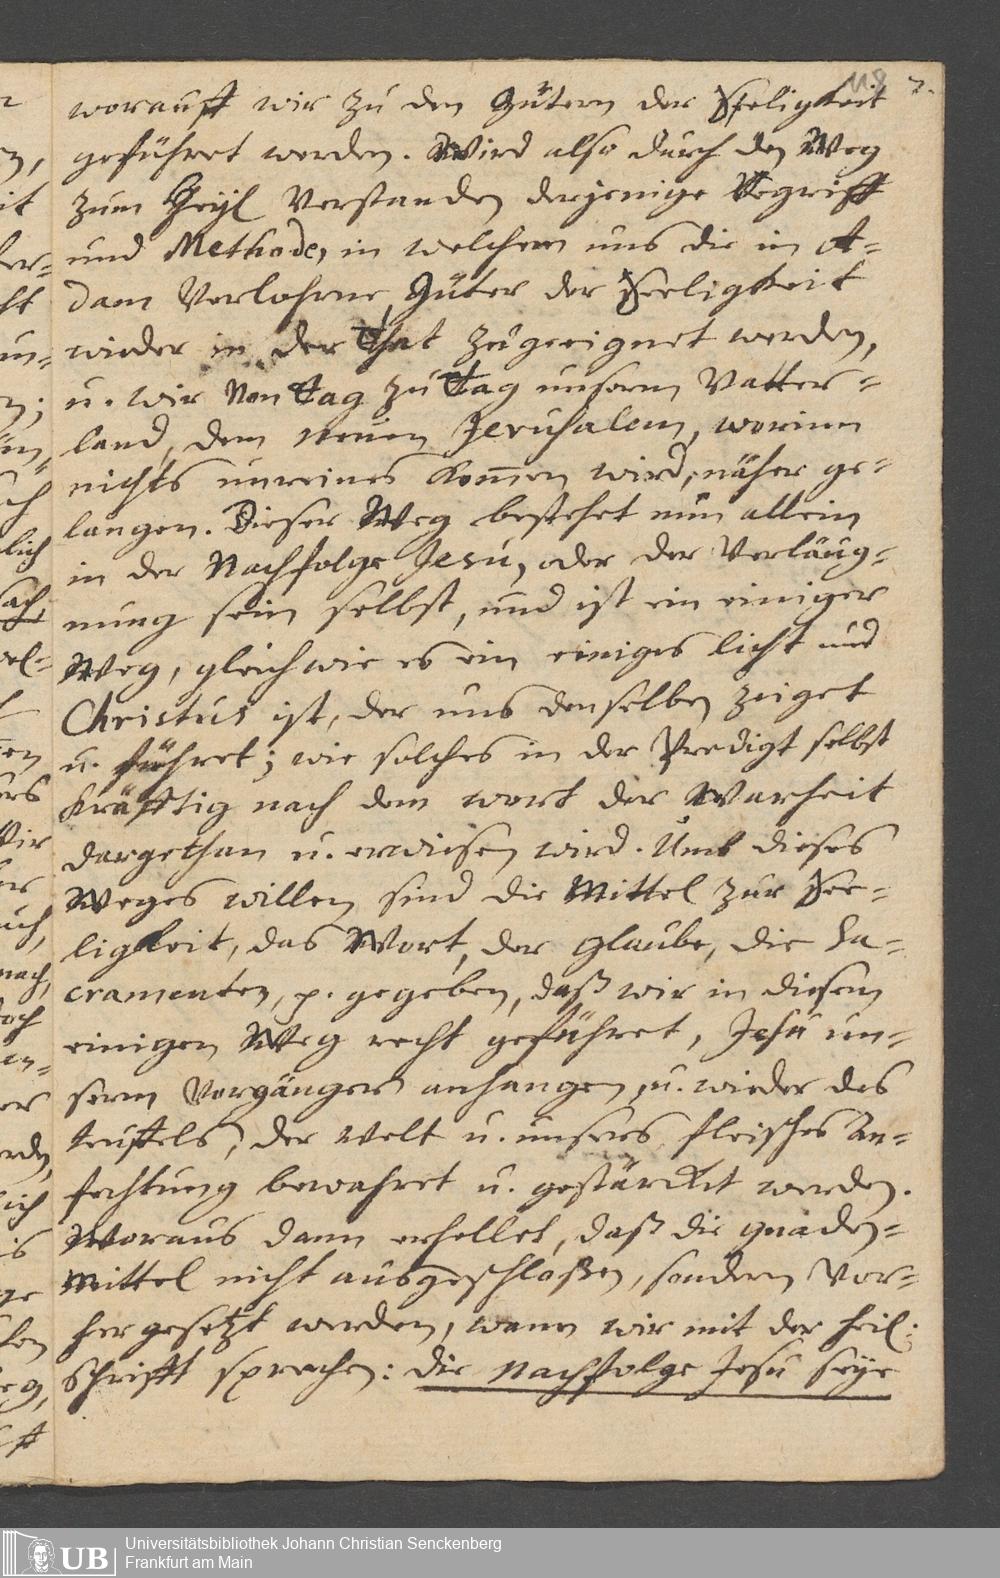 118 7.
worauff wir zu den Gütern der Seeligkeit
geführet werden. Wird also durch den Weg
zum Heyl Verstanden derjenige Begriff
und Methode, in welchem uns die in A-
dam Verlohrne Güter der Seeligkeit
wieder in der That zugeeignet werden,
u. wir Von Tag zu Tag unserm Vatter-
land, dem neuen Jerusalem, worinn
nichts unreines kom̅en wird, näher ge-
langen. Dieser Weg bestehet nun allein
in der Nachfolge Jesu, oder der Verläug-
nung sein selbst, und ist ein einiger
Weg, gleichwie es ein einiges licht und
Christus ist, der uns denselben zeiget
u. führet; wie solches in der Predigt selbst
kräfftig nach dem wort der Warheit
dargethan u. erwiesen wird. Umb dieses
Weges willen sind die Mittel zur See-
ligkeit, das Wort, der glaube, die Sa-
cramenten, p. gegeben, daß wir in diesem
einigen Weg recht geführet, Jesu un-
serm Vorgänger anhangen, u. wieder des
teuffels, der Welt u. unsers fleisches An-
fechtung bewahret u. gestärcket werden.
Woraus dann erhellet, daß die gnaden-
Mittel nicht ausgeschloßen, sondern Vor-
her gesetzt werden, wann wir mit der heil:
Schrifft sprechen: die Nachfolge Jesu seye
UB
Universitätsbibliothek Johann Christian Senckenberg
Frankfurt am Main